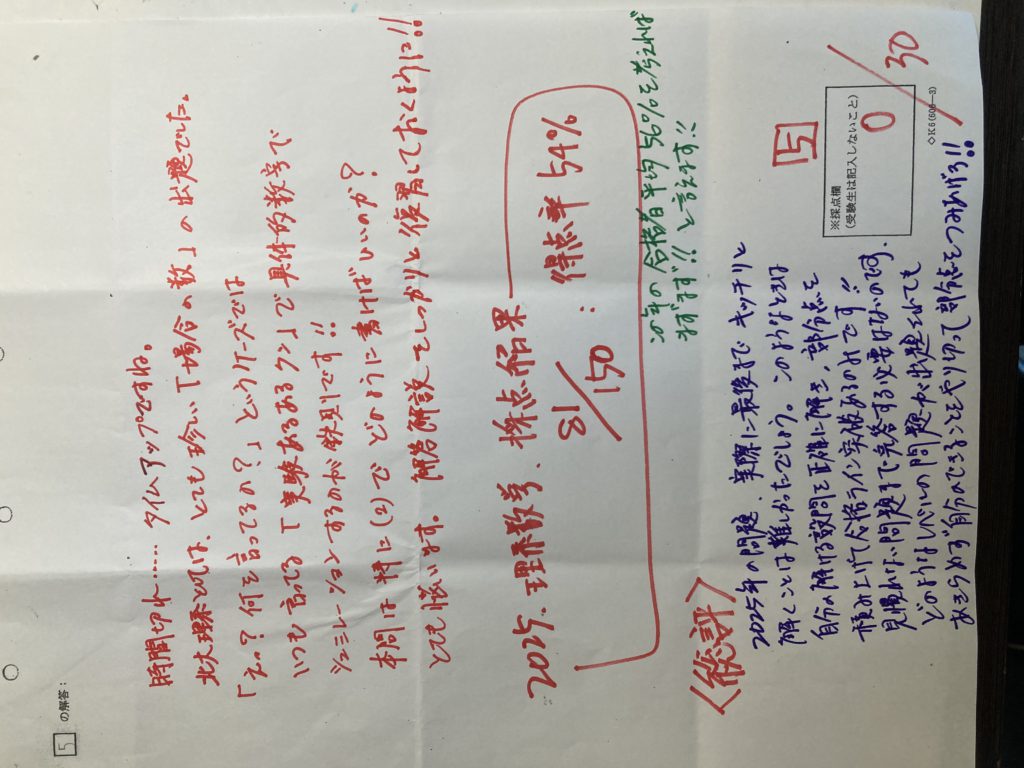 5 の解答：
時間切れ……… タイムアップですね。
北大理系としては、とても珍しい「場合の数」の出題でした。
「えっ？何を言ってるの？」というケースでは
いつも言ってる「実験あるあるクン」で具体的数字で
シュミレーションするのが鉄則です!!
本問は特に(2)でどのように書けばいいのか？
とても悩います。解答解説でしっかりと復習しておくように!!
2025. 理系数学、採点結果
81/150 : 得点率 54%
この年の合格者平均56%を考えれば
まずまず!!と言えます!!
〈総評〉
2025年の問題、実際に最後までキッチリと
解くことは難しかったでしょう。このようなときは
自分の解ける設問を正確に解き、部分点を
積み上げて合格ライン突破があるのです!!
見慣れない問題まで完答する必要はないの
どのようなレベルの問題が出題されても
あきらめず自分のできることをやり切って部分点をつみあげろ!!
5
※採点欄
（受験生は記入しないこと）
0/30
◇IC6(606―3)